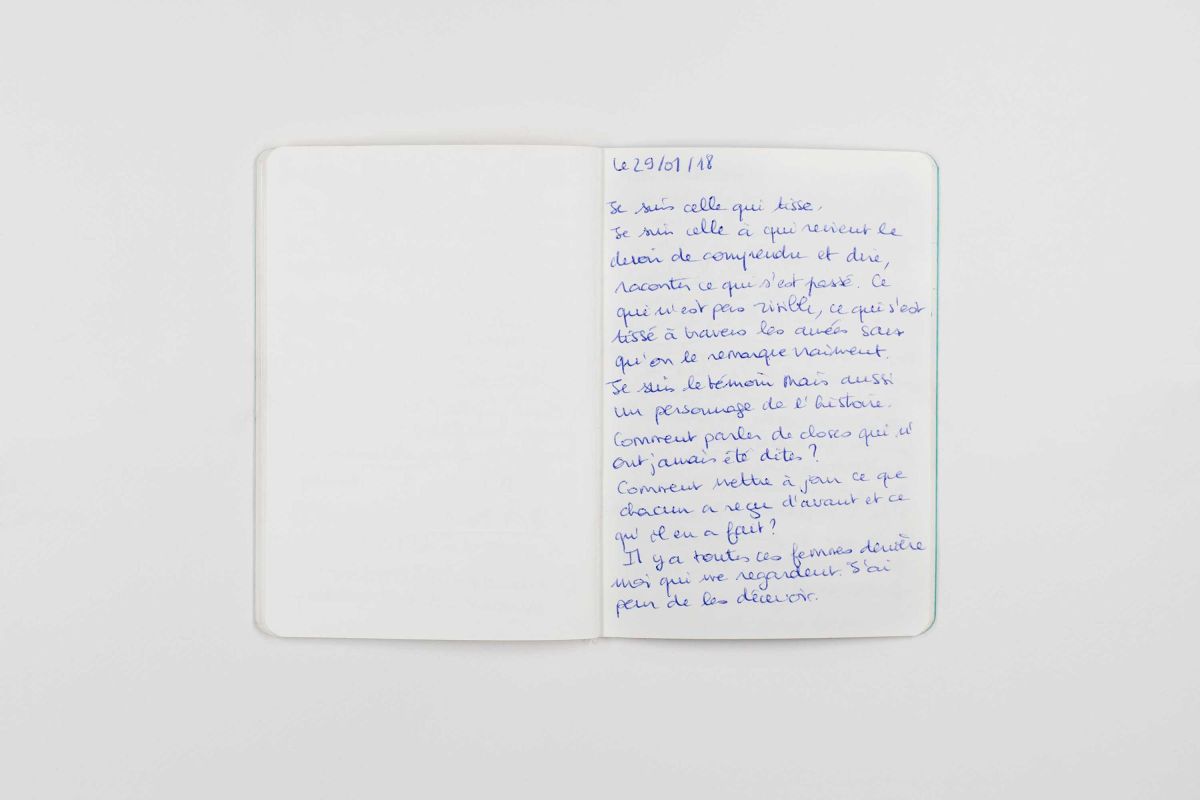 Le 29/01/18
Je suis celle qui tisse.
Je suis celle à qui revient le
devoir de comprendre et dire,
raconter ce qui s'est passé. Ce
qui n'est pas visible, ce qui s'est
tissé à travers les années sans
qu'on le remarque vraiment.
Je suis le témoin mais aussi
un personnage de l'histoire.
Comment parler de choses qui n'
ont jamais été dites ?
Comment mettre à jour ce que
chacun a reçu d'avant et ce
qu'il en a fait ?
Il y a toutes ces femmes derrière
moi qui me regardent. J'ai
peur de les décevoir.